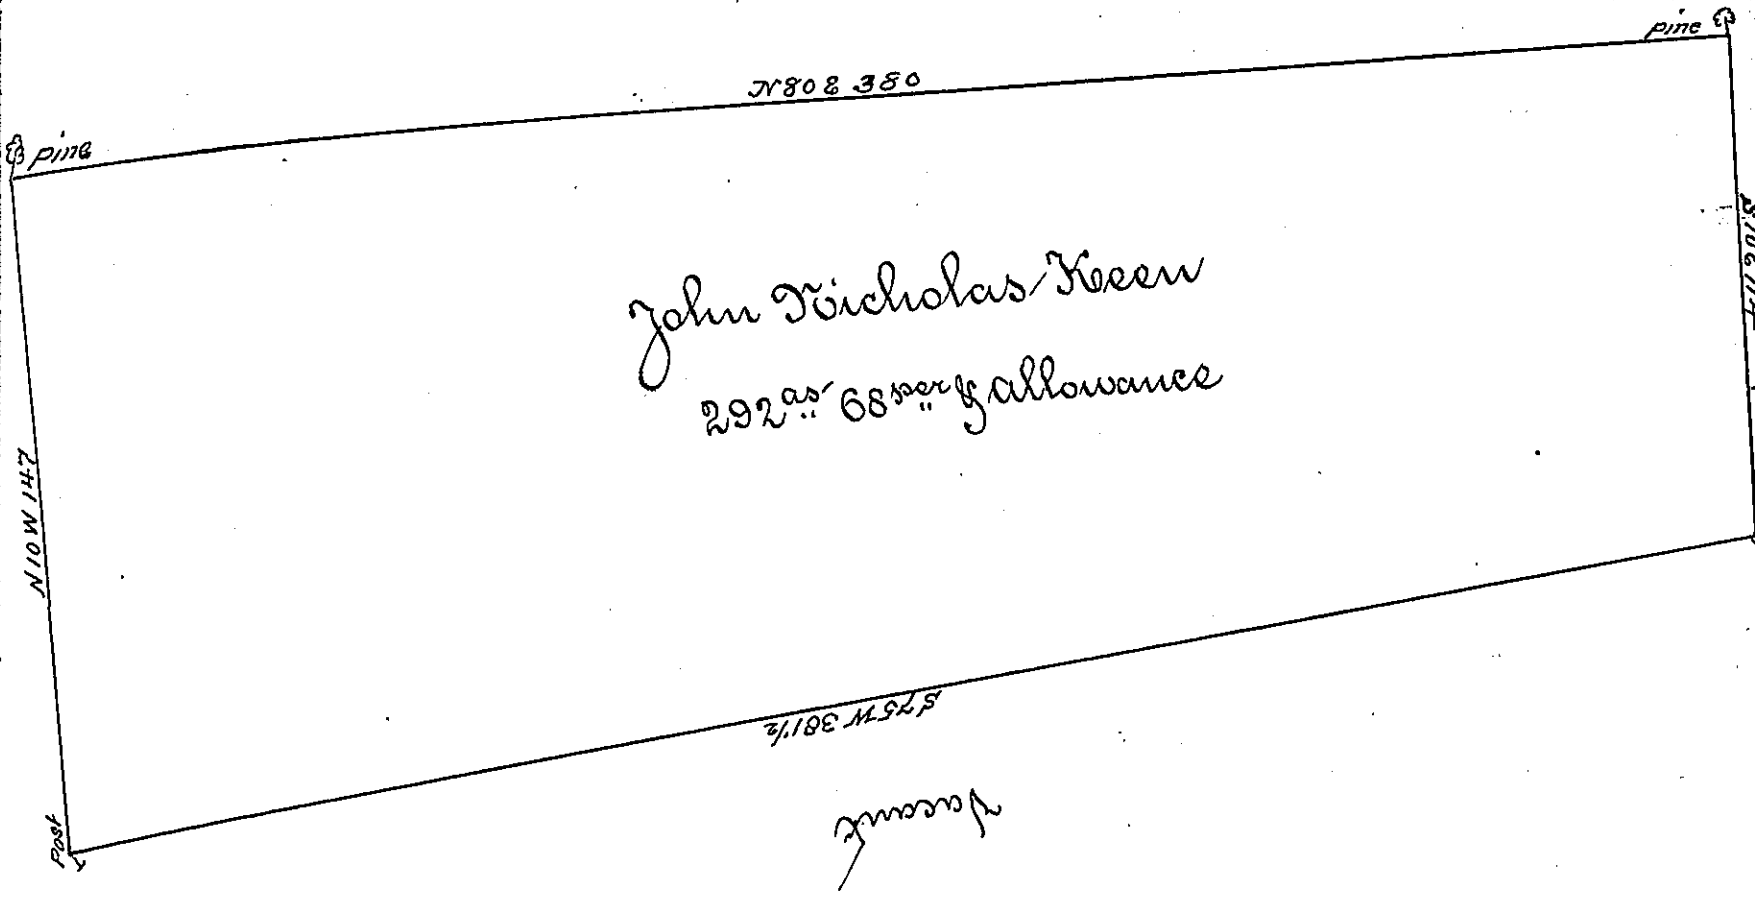 pine
N80E 380
pine
John Nicholas Keen
292 as 68 per & allowance
N10W 147
S75W 381½
Post
Vacant